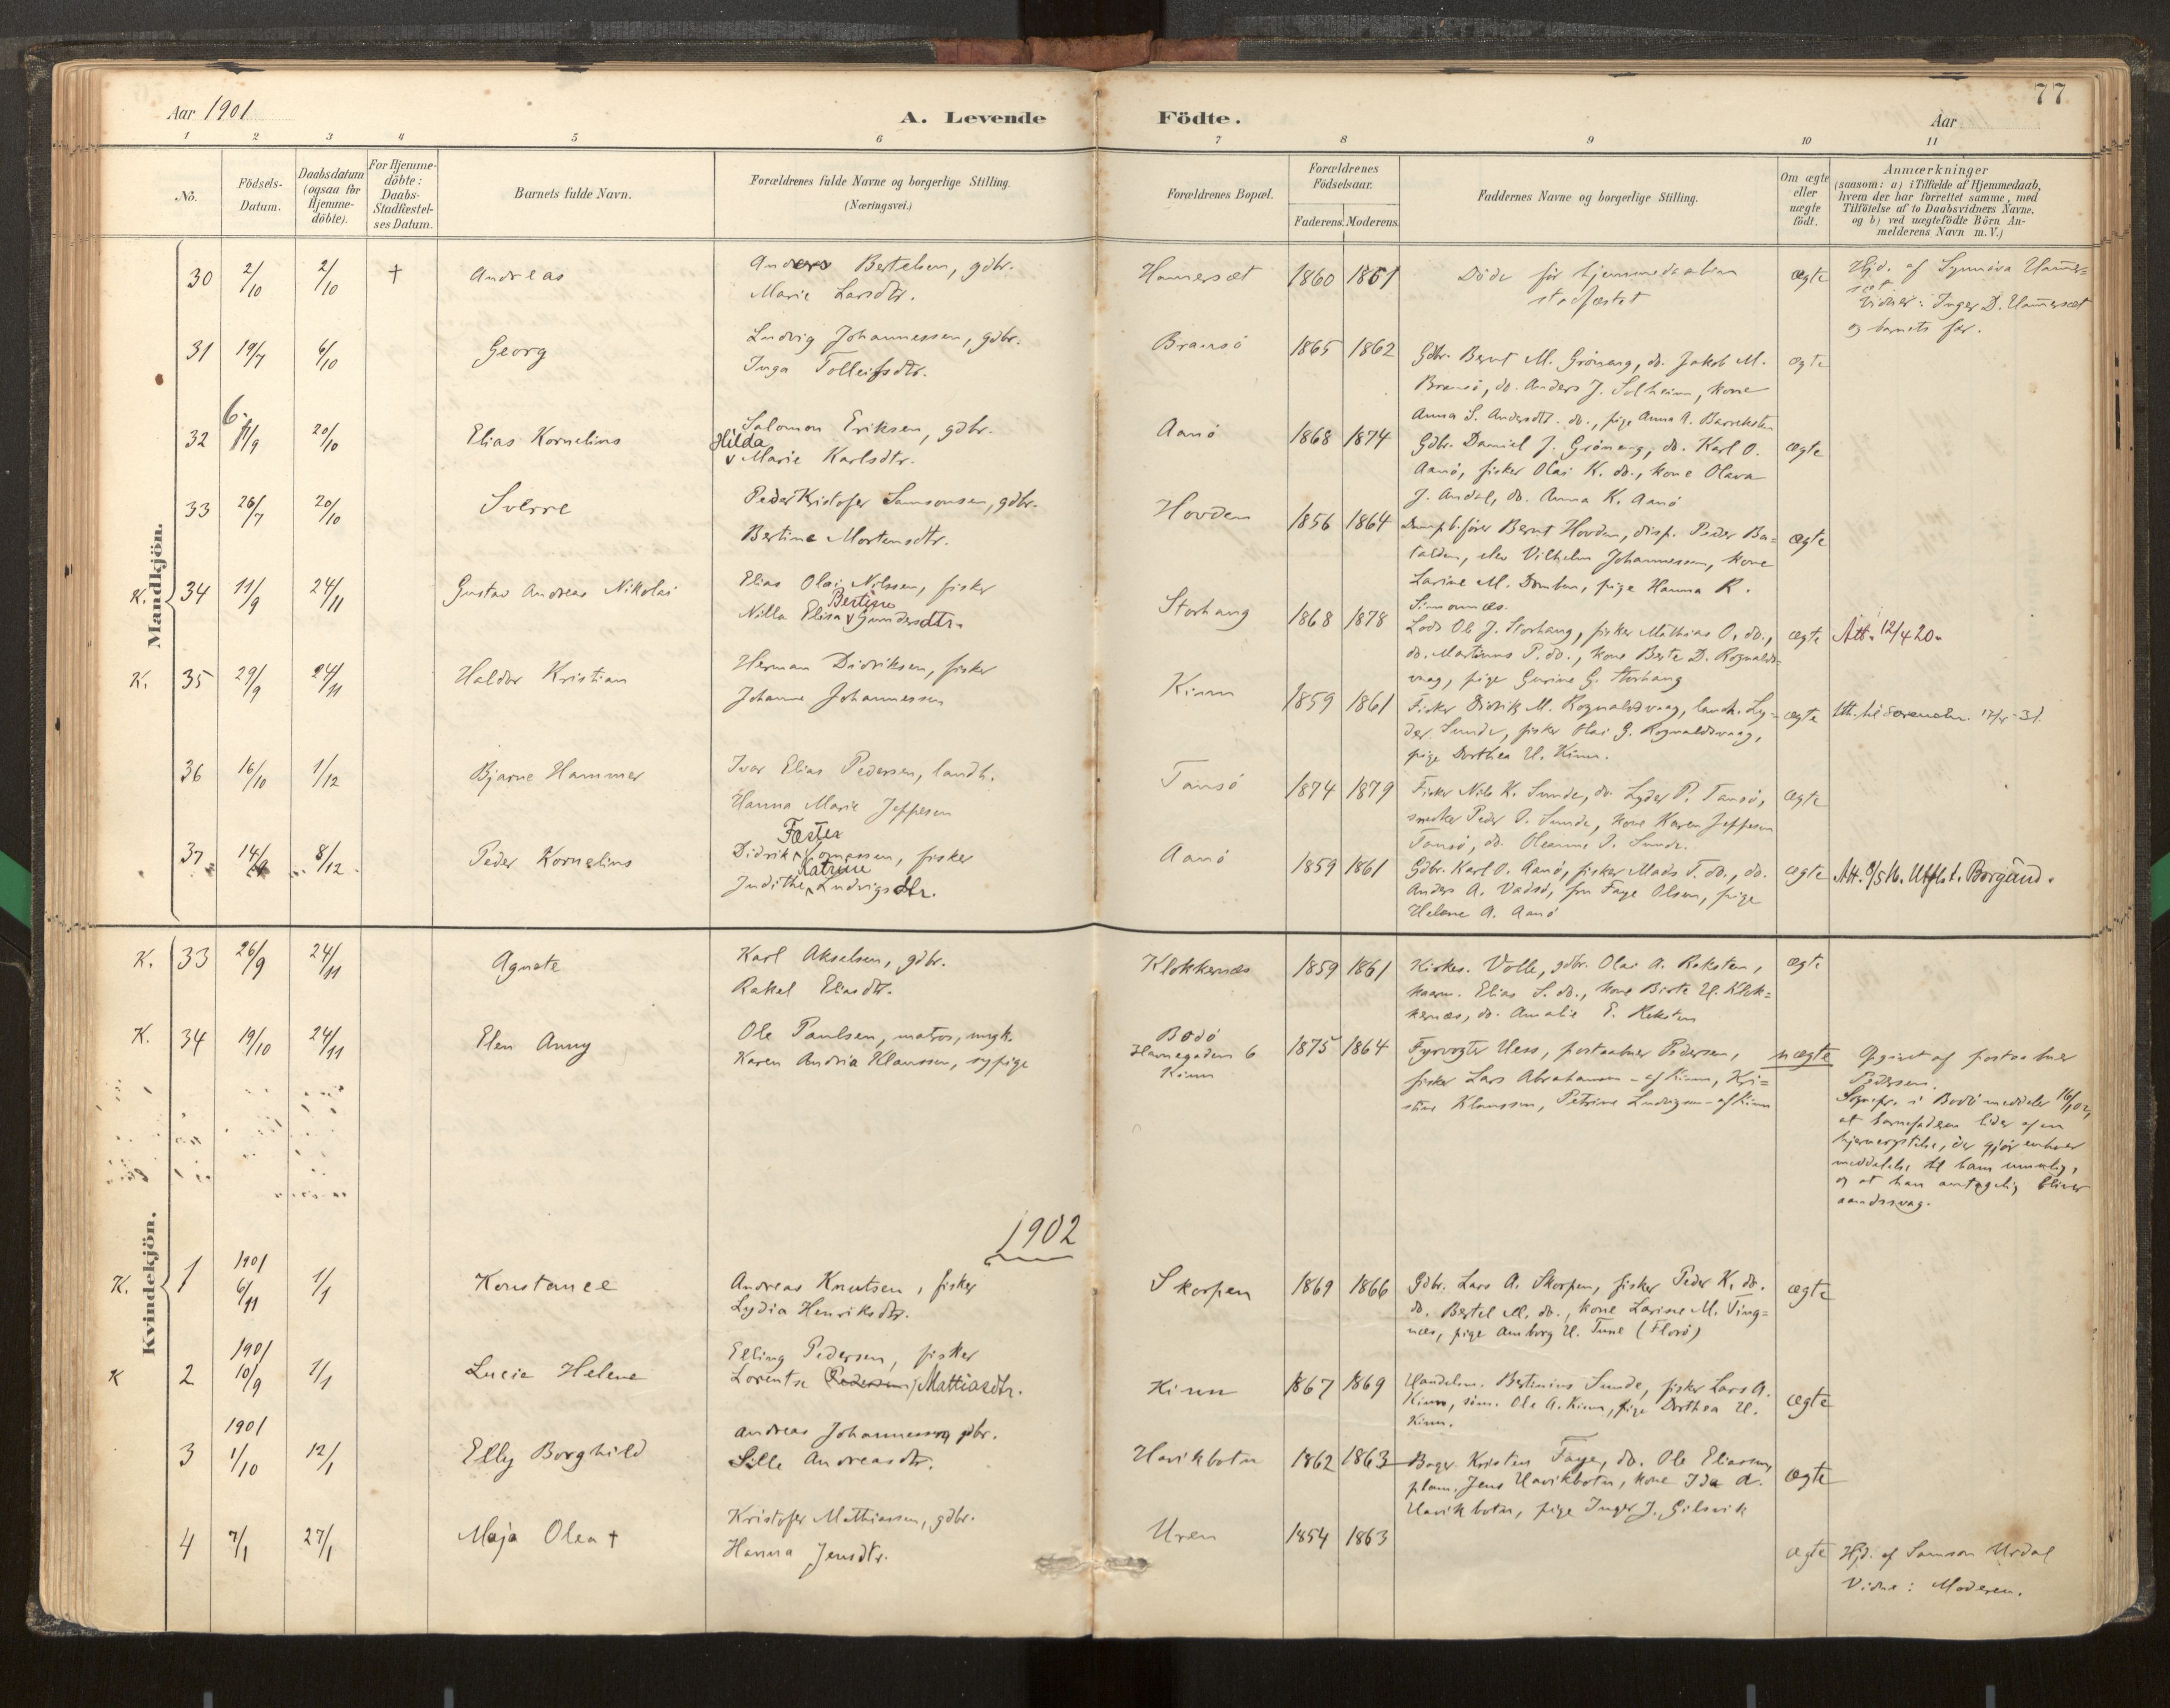 77
Aar 1901
A. Levende Födte.
Aar
1 2 3 4 5 6 7 8 9 10 11
No.
Födsels-
Datum.
Daabsdatum
(ogsaa for
Hjemme-
döbte).
For Hjemme-
döbte:
Daabs-
Stadfæstel-
ses Datum.
Barnets fulde Navn.
Forældrenes fulde Navne og borgerlige Stilling.
(Næringsvei.)
Forældrenes Bopæl.
Forældrenes
Födselsaar.
Faderens. Moderens.
Faddernes Navne og borgerlige Stilling.
Om ægte
eller
uægte
födt.
Anmærkninger
(saasom: a) i Tilfælde af Hjemmedaab,
hvem der har forrettet samme, med
Tilföielse af to Daabsvidners Navne,
og b) ved uægtefödte Börn An-
melderens Navn m. V.)
Mandkjön.
30 2/10 2/10 † Andreas
Anders Bertelsen, gdbr.
Marie Larsdtr.
Hamersæt 1860 1861
Döde för hjemmedaaben
stadfæstet
ægte
Hjd. af Synnöva Hamer=
sæt.
Vidner: Inger D. Hamersæt
og barnets far.
31 19/7 6/10 Georg
Ludvig Johannessen, gdbr.
Inga Tolleifsdtr.
Bransö 1865 1862
Gdbr. Bernt M. Gröneng, do. Jakob M.
Bransö, do. Anders J. Solheim, kone
Anna S. Andersdtr. do., pige Anna A. Barreksten
ægte
32 6/9 20/10 Elias Kornelius
Salomon Eriksen, gdbr.
Hilda
Marie Karlsdtr.
Aanö 1868 1874
Gdbr. Daniel J. Gröneng, do. Karl O.
Aanö, fisker Olai K. do., kone Olava
J. Andal, do. Anna K. Aanö
ægte
33 26/7 20/10 Sverre
Peder Kristofer Samsonsen, gdbr.
Bertine Mortensdtr.
Hovden 1856 1864
Dampb.förer Bernt Hovden, disp. Peder Ba=
talden, elev Vilhelm Johannessen, kone
Larine M. Domben, pige Hanna R.
Simonnæs.
ægte
K. 34 11/9 24/11 Gustav Andreas Nikolai
Elias Olai Nilssen, fisker
Bertine
Nilla Elisa Gundersdtr.
Storhang 1868 1878
Lods Ole J. Storhang, fisker Mathias O. do.,
do. Martinus P. do., kone Berte D. Rognalds-
vaag, pige Gurine G. Storhang
ægte Att. 12/4 20.
K. 35 29/9 24/11 Haldor Kristian
Herman Didriksen, fisker
Johanne Johannessen
Kinn 1859 1861
Fisker Didrik M. Rognaldsvaag, landh. Ly=
der Sunde, fisker Olai G. Rognaldsvaag,
pige Dorthea H. Kinn.
ægte
36 16/10 1/12 Bjarne Hammer
Ivar Elias Pedersen, landh.
Hanna Marie Jeppesen
Tansö 1874 1879
Fisker Nils K. Sunde, do. Lyder P. Tansö,
snedker Peder I. Sunde, kone Karen Jeppesen
Tansö, do. Oleanne I. Sunde.
ægte
37 14/9 8/12 Peder Kornelius
Fæster
Didrik Tomassen, fisker
Katrine
Judithe Ludvigsdtr.
Aanö 1859 1861
Gdbr. Karl O. Aanö, fisker Mads T. do., do.
Anders A. Vadsö, fru Faye Olsen, pige
Helene A. Aanö
ægte Att. 9/5 16. Utfl. t. Borgund.
Kvindekjön.
K. 33 26/9 24/11 Agnete
Karl Akselsen, gdbr.
Rakel Eliasdtr.
Klokkernæs 1859 1861
Kirkes. Volle, gdbr. Olai A. Reksten,
kaarm. Elias S. do., kone Birte H. Klok=
kernæs, do. Amalie E. Reksten
ægte
K. 34 19/10 24/11 Elen Anny
Ole Paulsen, matros, ungk.
Karen Andria Klaussen, sypige
Bodö
Havnegaden 6
Kinn
1875 1864
Fyrvogter Hess, postaabner Pedersen,
fisker Lars Abrahamsen - af Kinn, Kri=
stine Klaussen, Petrine Ludvigsen - af Kinn
uægte
Opgivet af postaabner
Pedersen.
Sognepr. i Bodö meddeler 16/1 02,
at barnefaderen lider af en
hjernerystelse, der gjör enhver
meddelelse til ham umulig,
og at han antagelig bliver
aandssvag.
1902
K. 1 1901 6/11 1/1 Konstance
Andreas Knutsen, fisker
Lydia Henriksdtr.
Skorpen 1869 1866
Gdbr. Lars A. Skorpen, fisker Peder K. do.
do. Bertel M. do., kone Larine M. Ting=
næs, pige Amborg H. Tune (Florö)
ægte
K 2 1901 10/9 1/1 Lucie Helene
Elling Pedersen, fisker
Lorentse Pedersen Mattiasdtr.
Kinn 1867 1869
Handelsm. Bertinius Sunde, fisker Lars A.
Kinn, söm. Ole A. Kinn, pige Dorthea H.
Kinn.
ægte
3 1901 1/10 12/1 Elly Borghild
Andreas Johannessen, gdbr.
Sille Andreasdtr.
Havikbotn 1862 1863
Bager Kristen Faye, do. Ole Eliassen,
plam. Jens Havikbotn, kone Ida A.
Havikbotn, pige Inger J. Gilsvik
ægte
4 7/1 27/1 Maja Olea †
Kristofer Mathiassen, gdbr.
Hanna Jensdtr.
Uren 1854 1863
ægte
Hjd. af Samson Urdal
Vidne: Moderen.